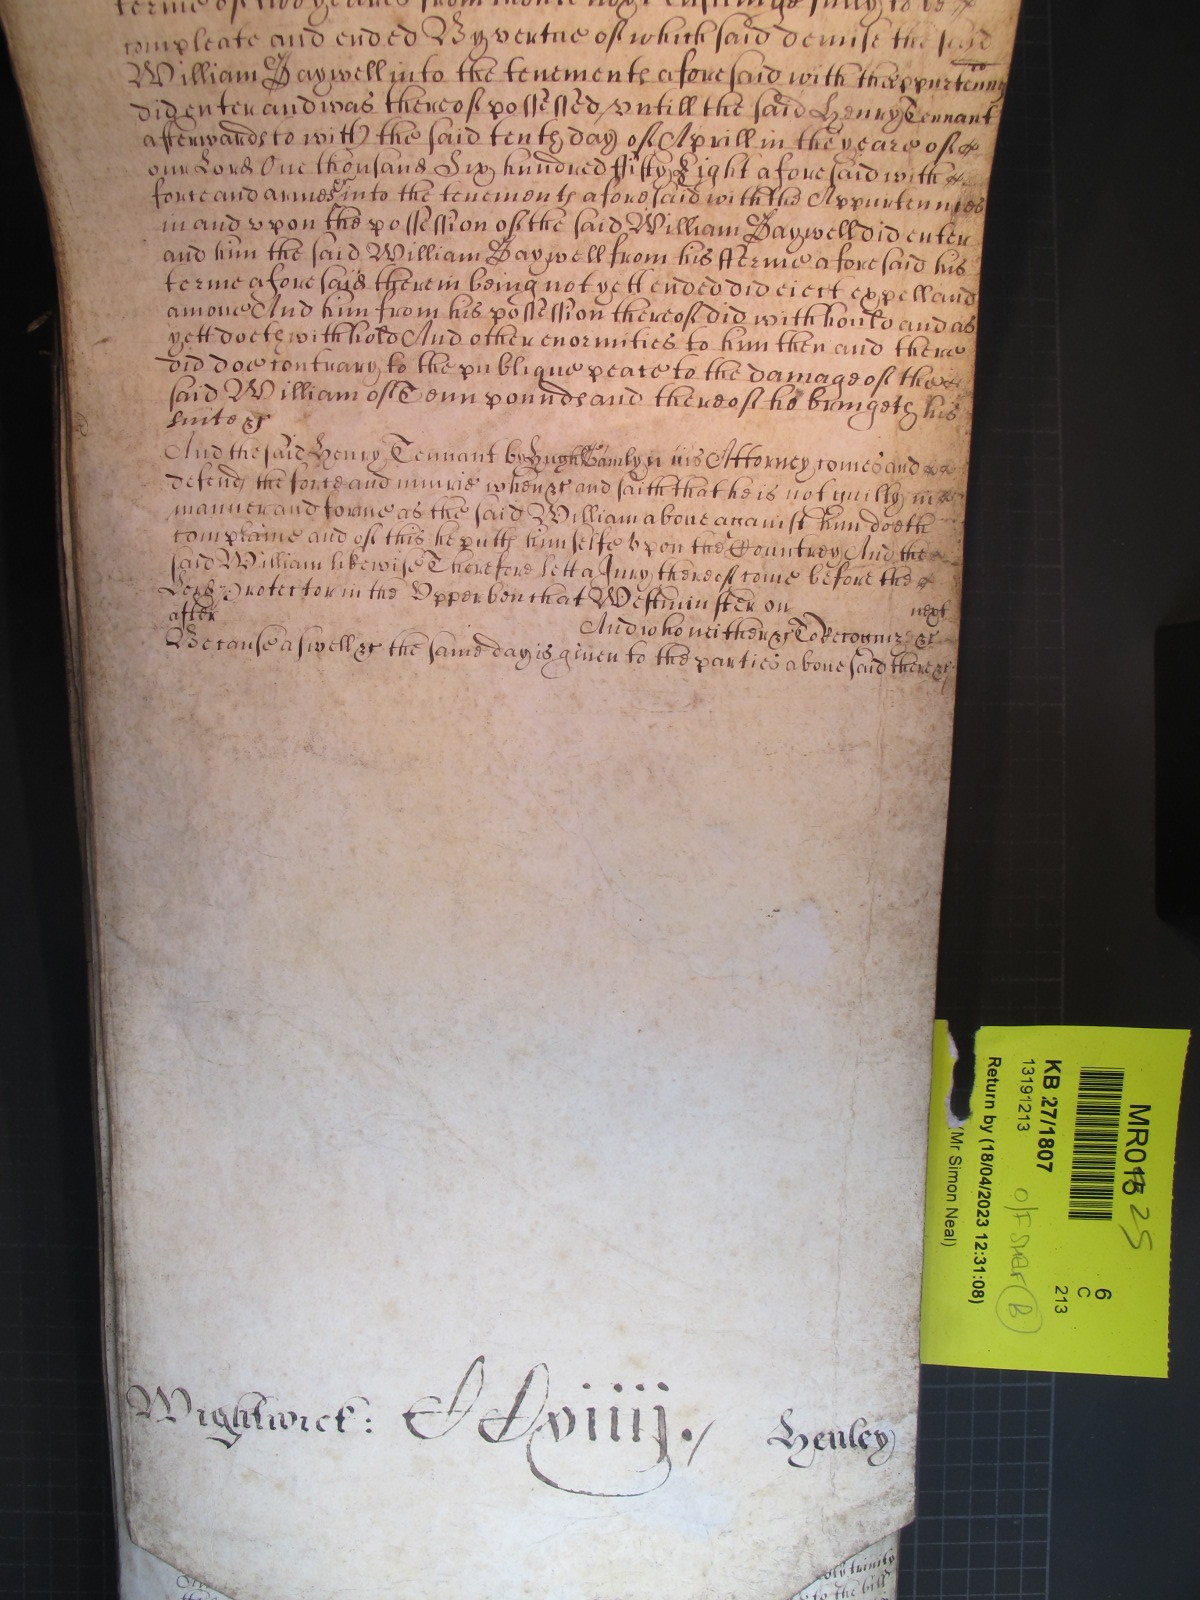 terme of two yeares from thence next ensuinge fully to be
compleate and ended By vertue of which said demise the said
William Bagwell into the tenements aforesaid with thappurtennces
did enter and was thereof possessed untill the said Henry Tennant
afterwards to witt the said tenth day of Aprill in the yeare of
our Lord One thousand Six hundred ffifty Eight aforesaid with
force and armes &c into the tenements aforesaid with the Appurtennces
in and upon the possession of the said William Bagwell did enter
and him the said William Bagwell from his fferme aforesaid his
terme aforesaid therein being not yett ended did eject expell and
amove And him from his possession thereof did withhould and as
yett doeth withhold And other enormities to him then and there
did doe contrary to the publique peace to the damage of the
said William of Tenn pounds and thereof he bringeth his
suite &c
And the said Henry Tennant by Hugh his Attorney comes and
defends the force and iniurie when &c and saith that he is not guilty in
manner and forme as the said William above against him doeth
complaine and of this he putts himselfe upon the Countrey And the
said William likewise Therefore lett a Jury thereof come before the
Lord Protector in the Upper bench att Westminster on next
after And who neither &c To Recognize &c
Because aswell &c the same day is given to the parties abovesaid there &c
Wightwick: viiij. Henley
oly trinity
to the bill
MR015 25
KB 27/1807
13191213
Return by (18/04/2023 12:31:08)
(Mr Simon Neal)
6
C
213
B